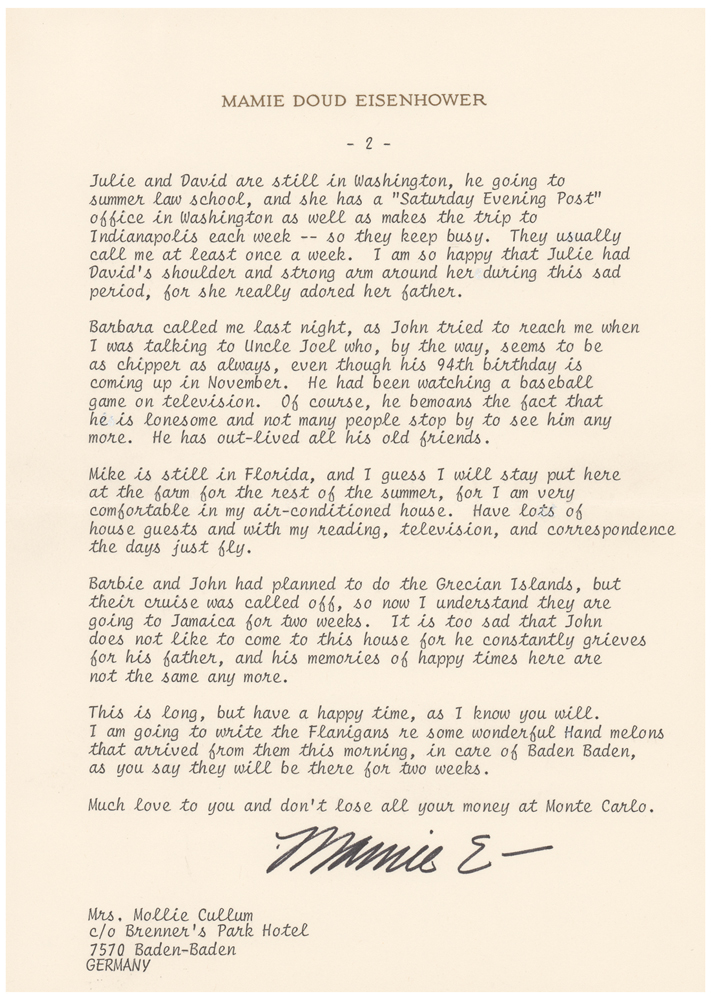 MAMIE DOUD EISENHOWER
- 2 -
Julie and David are still in Washington, he going to
summer law school, and she has a "Saturday Evening Post"
office in Washington as well as makes the trip to
Indianapolis each week -- so they keep busy. They usually
call me at least once a week. I am so happy that Julie had
David's shoulder and strong arm around her during this sad
period, for she really adored her father.
Barbara called me last night, as John tried to reach me when
I was talking to Uncle Joel who, by the way, seems to be
as chipper as always, even though his 94th birthday is
coming up in November. He had been watching a baseball
game on television. Of course, he bemoans the fact that
he is lonesome and not many people stop by to see him any
more. He has out-lived all his old friends.
Mike is still in Florida, and I guess I will stay put here
at the farm for the rest of the summer, for I am very
comfortable in my air-conditioned house. Have lots of
house guests and with my reading, television, and correspondence
the days just fly.
Barbie and John had planned to do the Grecian Islands, but
their cruise was called off, so now I understand they are
going to Jamaica for two weeks. It is too sad that John
does not like to come to this house for he constantly grieves
for his father, and his memories of happy times here are
not the same any more.
This is long, but have a happy time, as I know you will.
I am going to write the Flanigans re some wonderful Hand melons
that arrived from them this morning, in care of Baden Baden,
as you say they will be there for two weeks.
Much love to you and don't lose all your money at Monte Carlo.
Mamie E—
Mrs. Mollie Cullum
c/o Brenner's Park Hotel
7570 Baden-Baden
GERMANY